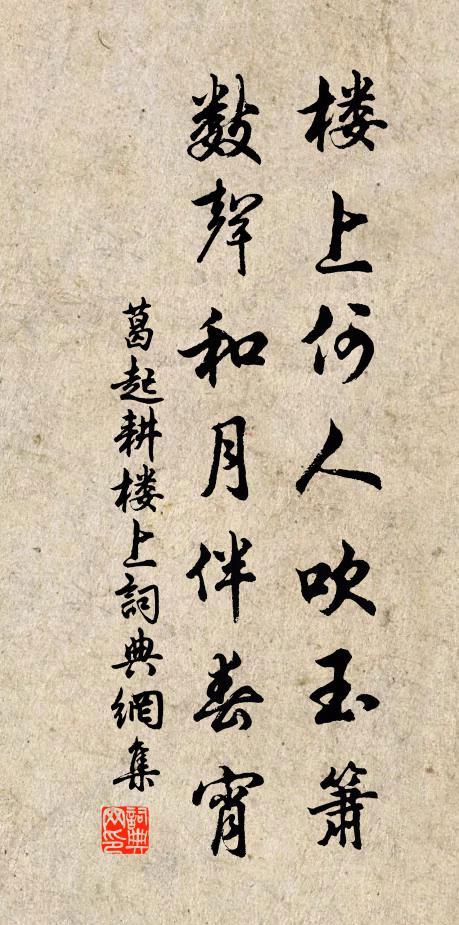 楼上何人吹玉簫
數聲和月伴春宵
葛起耕楼上詞典網集
詞典網印